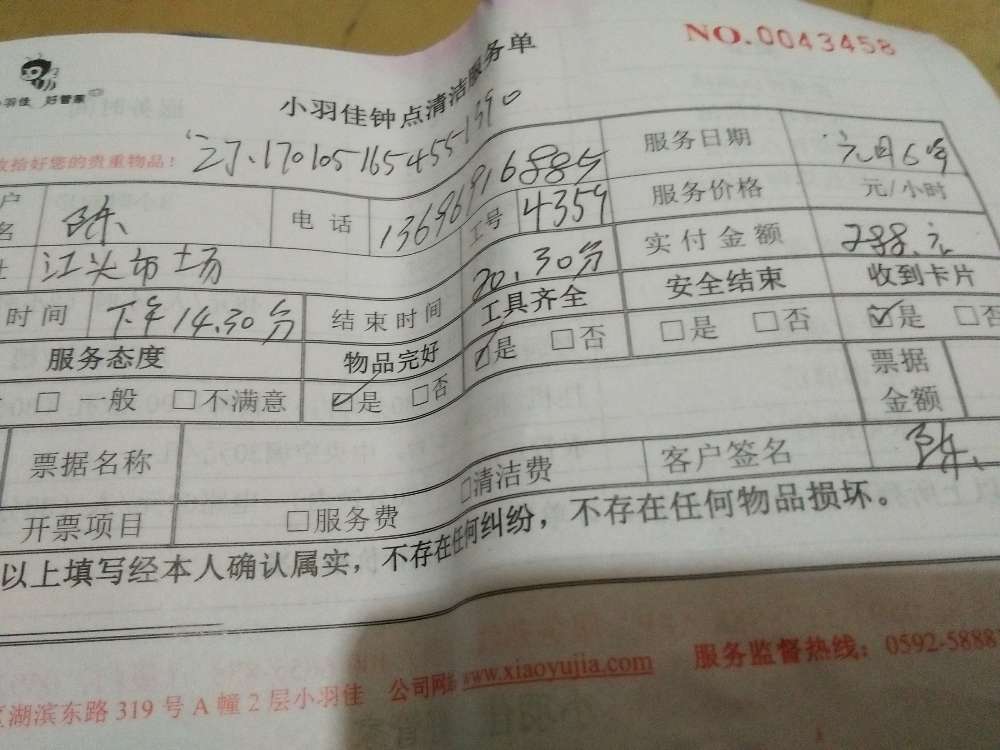 NO.0043458
小羽佳 好管家
小羽佳钟点清洁服务单
订.170105165455-1390
收拾好您的贵重物品!
户名 陈 电话 13696916885 工号 4359 服务日期 元月6号
服务价格 元/小时
址 江头市场 实付金额 288.元
时间 下午14.30分 结束时间 20.30分 工具齐全 安全结束 收到卡片
服务态度 物品完好 ☑是 □否 □是 □否 ☑是 □否
□一般 □不满意 ☑是 □否 票据金额
票据名称
开票项目 □服务费 □清洁费 客户签名 陈
以上填写经本人确认属实,不存在任何纠纷,不存在任何物品损坏。
区湖滨东路319号A幢2层小羽佳 公司网 www.xiaoyujia.com 服务监督热线:0592-5888